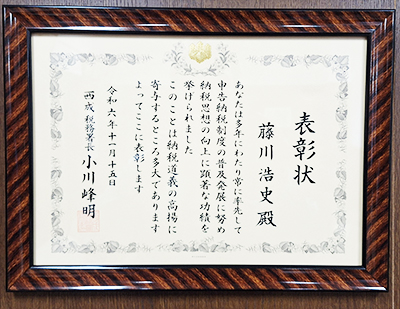 表彰状
藤川浩史殿
あなたは多年にわたり常に率先して
申告納税制度の普及発展に努め
納税思想の向上に顕著な功績を
挙げられました
このことは納税道義の高揚に
寄与するところ多大であります
よってここに表彰します
令和六年十一月十五日
西成税務署長 小川峰明